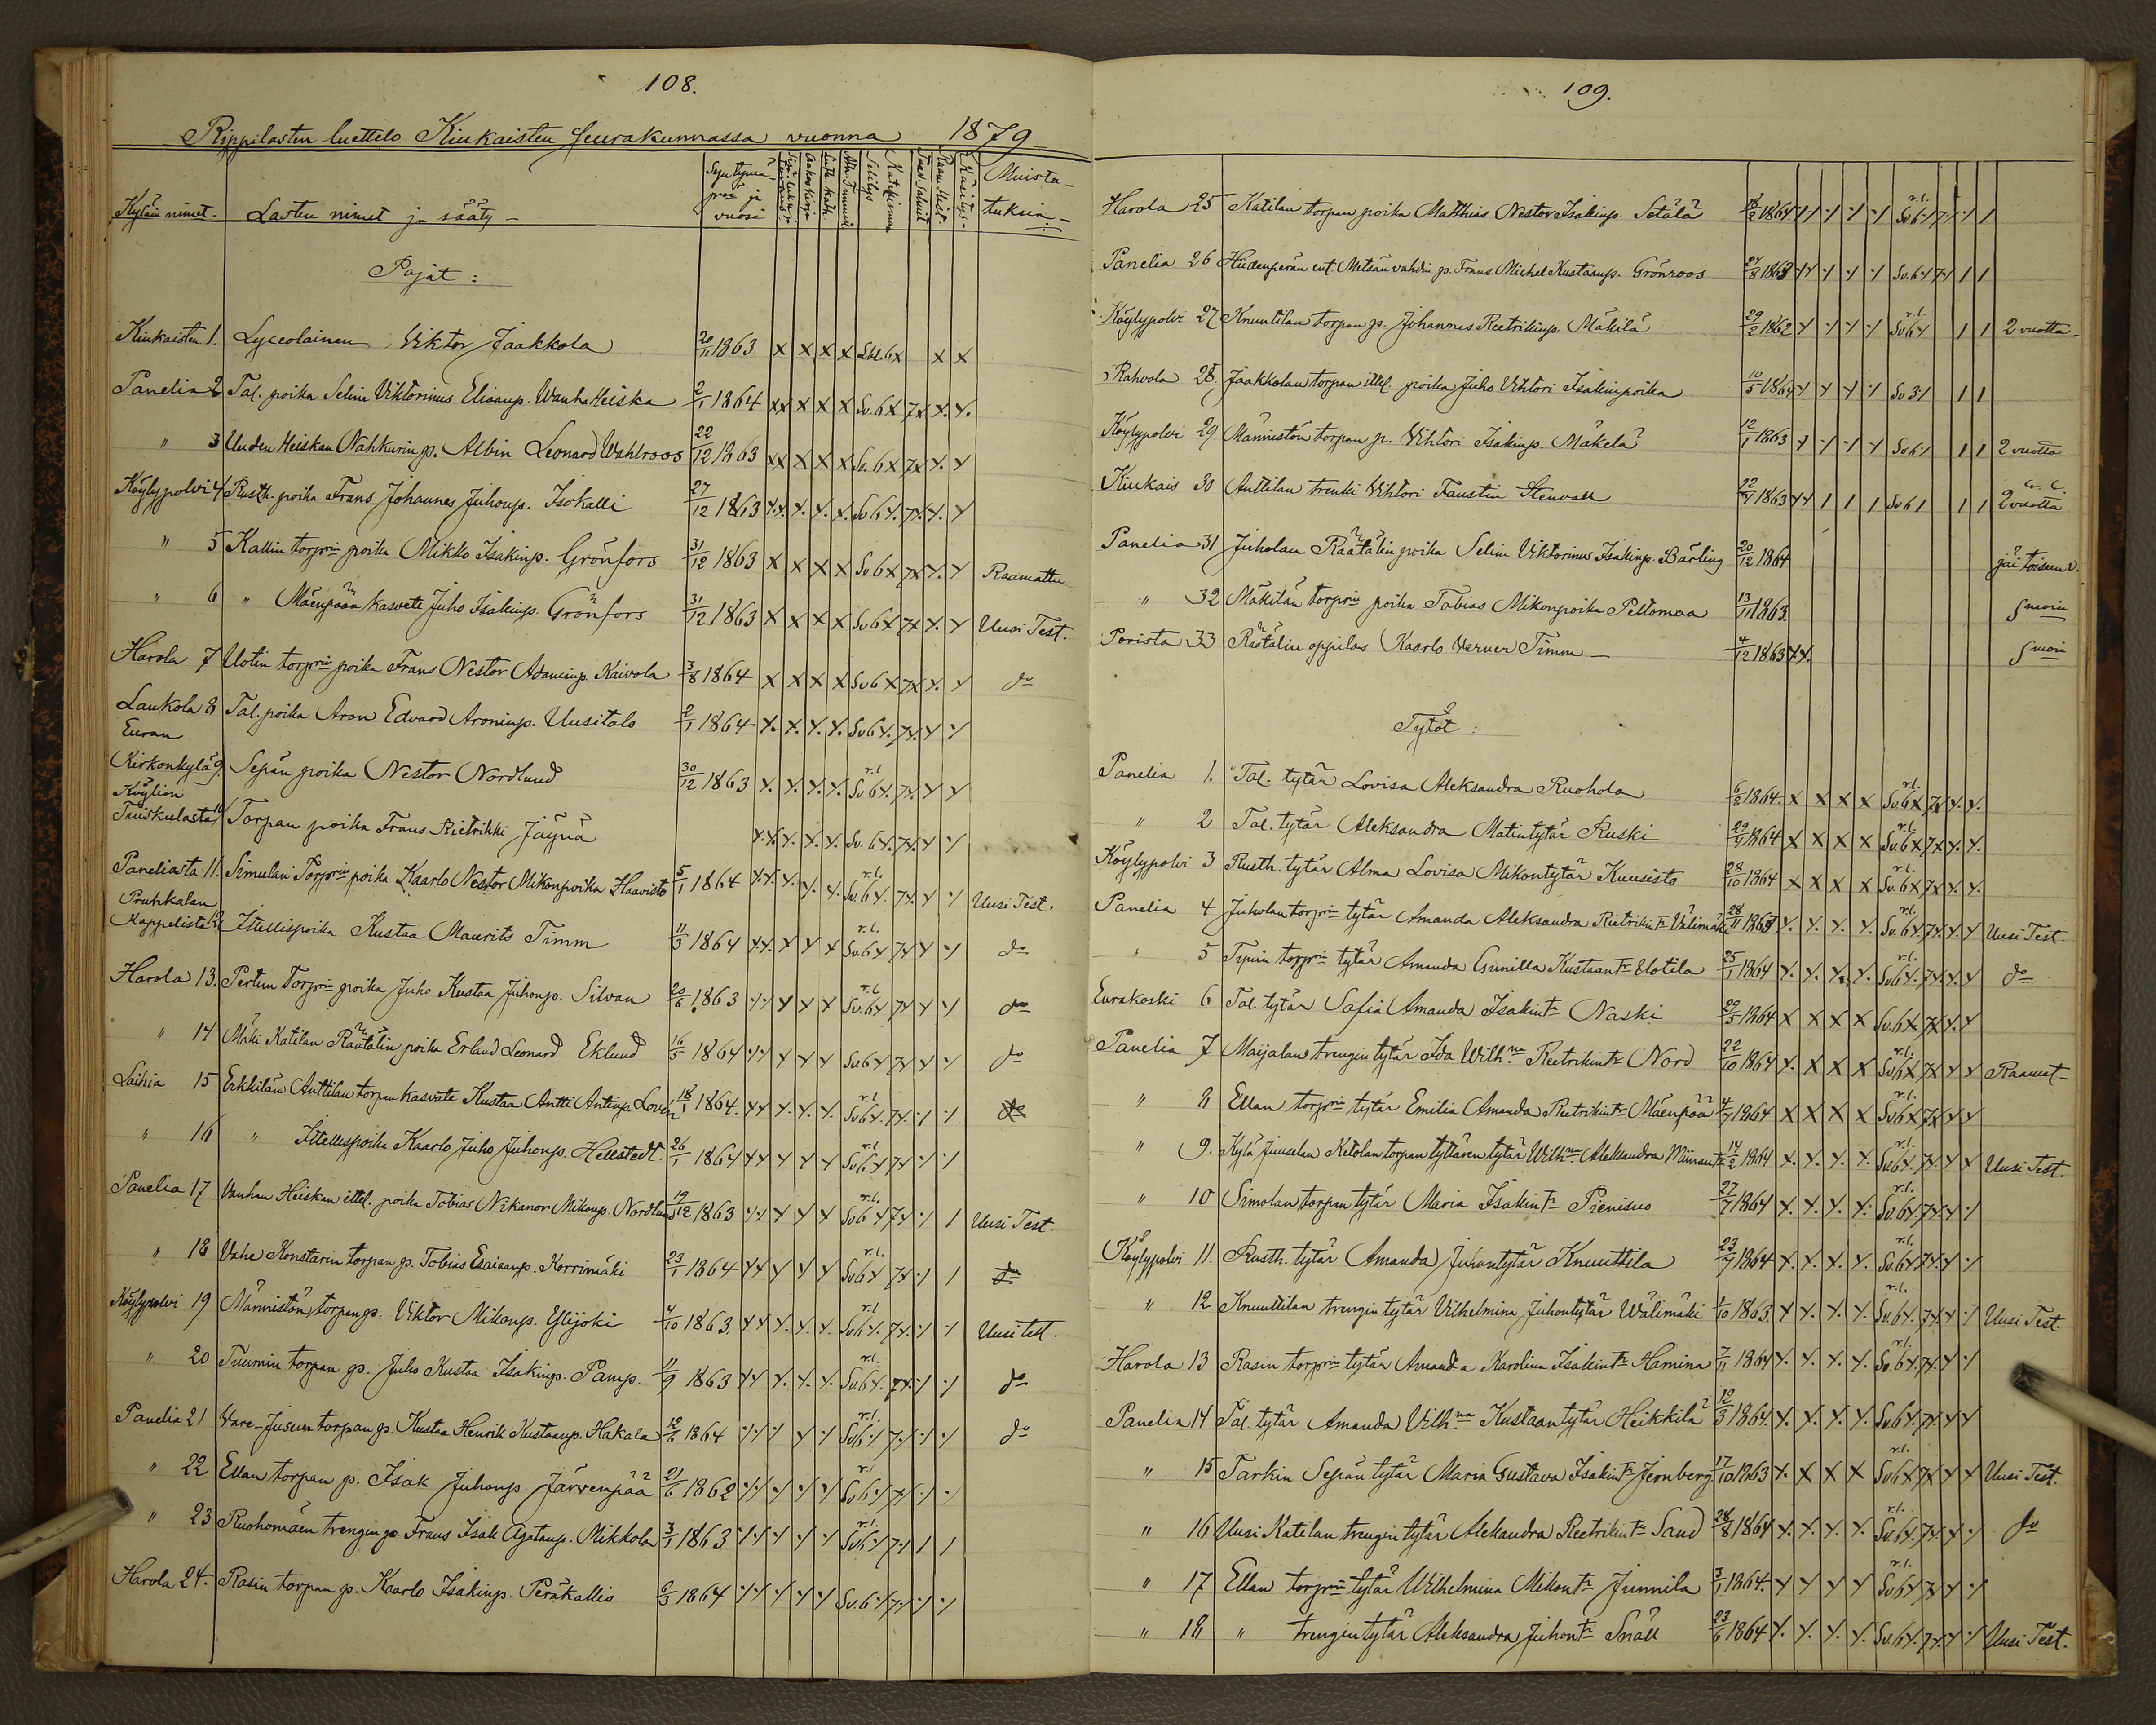 108.
Rippilasten luettelo Kiukaisten seurakunnassa vuonna 1879
Kyläin nimet. Lasten nimet ja sääty Syntymä- pv. ja vuosi Katekismus Selitys Muistutuksia
Pojat:
Kiukaisten 1. Lyceolainen Viktor Jaakkola 20/11 1863 x x x x 6x x x
Panelia 2 Tal. poika Selim Viktorinus Eliaanp. Wanha Heiska 2/1 1864 xx x x x Sv. 6x 7x x. x.
" 3 Uuden Heiskan Nahkurin p. Albin Leonard Wahlroos 22/12 1863 xx x x x Sv. 6x 7x x. x
Köylypolvi 4 Rusth. poika Frans Johannes Juhonp. Isokalli 27/12 1863 x.x. x. x. x. Sv 6x. 7x. x. x
" 5 Kallin torprin poika Mikko Isakinp. Grönfors 31/12 1863 x x x x Sv 6x 7x x. x Raamattu
" 6 " Mäenpään kasvate Juho Isakinp. Grönfors 31/12 1863 x x x x Sv 6x 7x x. x Uusi Test.
Harola 7 Uotin torprin poika Frans Nestor Adaminp. Kaivola 3/8 1864 x x x x Sv 6x 7x x. x do
Laukola 8 Tal. poika Aron Edvard Aroninp. Uusitalo 2/1 1864 x. x. x. x. Sv 6x. 7x. x x
Euran
Kirkonkylä 9. Sepän poika Nestor Nordlund 30/12 1863 x. x. x. x. r.l. Sv 6x. 7x. x x
Köyliön
Tuiskulasta 10 Torpan poika Frans Rietrikki Jäynä x.x. x. x. x. Sv. 6x. 7x. x x
Paneliasta 11. Simulan Torprin poika Kaarlo Nestor Mikonpoika Haavisto 5/1 1864 x.x. x. x. x. r.l. Sv. 6x. 7x. x x Uusi Test.
Pruhkalan
Kappelista 12 Itellispoika Kustaa Maurits Timm 11/3 1864 x.x. x x x r.l. Sv. 6x 7x x x do
Harola 13. Pertun Torprin poika Juho Kustaa Juhonp. Silvan 20/6 1863 x x x x x r.l. Sv. 6x 7x x x do
" 14 Mäki Katilan Räätälin poika Erland Leonard Eklund 16/5 1864 x x x x x Sv. 6x 7x x x do
Laihia 15 Erkkilän Anttilan torpan kasvate Kustaa Antti Antinp. Lovén 18/1 1864. xx x. x. x. r.l. Sv 6x. 7x. x x do
" 16 " Itellispoika Kaarlo Juho Juhonp. Hellstedt. 26/1 1864 xx x x x r.l. Sv 6x 7x x x
Panelia 17 Vanhan Heiskan itell. poika Tobias Nikanor Mikonp. Nordlund 19/12 1863 x x x x x r.l. Sv 6x 7x x / Uusi Test.
" 18 Vahe Konstarin torpan p. Tobias Esaiaanp. Korrimäki 23/1 1864 xx x x x r.l. Sv 6x 7x x / do
Köylypolvi 19 Männistön torpan p. Viktor Mikonp. Ylijoki 4/10 1863. xx x. x. x. r.l. Sv 6x. 7x. x x Uusi test.
" 20 Tuumin torpan p. Juho Kustaa Isakinp. Pamp. 11/9 1863 xx x. x. x. r.l. Sv 6x. 7x. x x do
Panelia 21 Vare-Jusun torpan p. Kustaa Henrik Kustaanp. Hakala 12/6 1864 x x x x x r.l. Sv 6x 7x x x do
" 22 Ellan torpan p. Isak Juhonp Järvenpää 21/6 1862 x x x x x r.l. Sv. 6x 7x x x
" 23 Ruohomäen trengin p. Frans Isak Agatanp. Mikkola 3/1 1863 x x x x x r.l. Sv 6x 7x / /
Harola 24. Rasin torpan p. Kaarlo Isakinp. Peräkallio 6/3 1864 x x x x x Sv. 6x 7x x x
109.
Harola 25 Katilan torpan poika Matthias Nestor Isakinp. Setälä 18/2 1864 x x x x x r.l. Sv 6x 7x x / /
Panelia 26 Hiidenperän ent. Metsän vahdin p. Frans Michel Kustaanp. Grönroos 24/8 1863 xx x x x Sv. 6x 7x / /
Köylypolvi 27 Knuutilan torpan p. Johannes Reetrikinp. Mäkilä 29/2 1862 x x x x r.l. Sv 6x / / 2 vuotta
Rahvola 28. Jaakkolan torpan itell. poika Juho Vihtori Isakinpoika 10/5 1864 x x x x Sv 3x / /
Köylypolvi 29 Männistön torpan p. Vihtori Isakinp. Mäkelä 12/1 1863 x x x x Sv 6x / / 2 vuotta
Kiukais 30 Anttilan trenki Vihtori Faustin Stenvall 22/9 1863 xx / / / Sv 6/ / / 2 vuotta
Panelia 31 Juholan Räätälin poika Selim Viktorinus Isakinp. Bärling 20/12 1864 jäi toiseen v.
" 32 Mäkilän torprin poika Tobias Mikonpoika Peltomaa 13/11 1863. Smoin
Porista 33 Räätälin oppilas Kaarlo Verner Timm 4/12 1863 xx. Smoin
Tytöt:
Panelia 1. Tal. tytär Lovisa Aleksandra Ruohola 6/2 1864. x x x x r.l. Sv. 6x 7x x. x.
" 2 Tal. tytär Aleksandra Matintytär Ruski 29/9 1864 x x x x r.l. Sv. 6x 7x x. x.
Köylypolvi 3 Rusth. tytär Alma Lovisa Mikontytär Kuusisto 28/10 1864 x x x x r.l. Sv. 6x 7x x. x.
Panelia 4 Juholan torprin tytär Amanda Aleksandra Rietrikint. Välimäki 28/11 1863 x. x. x. x. r.l. Sv. 6x. 7x. x. x Uusi Test.
" 5 Typin torprin tytär Amanda Gunilla Kustaant. Uotila 25/1 1864 x. x. x. x. r.l. Sv 6x. 7x. x. x do
Eurakoski 6 Tal. tytär Sofia Amanda Isakint. Naski 29/5 1864 x x x x Sv. 6x 7x x. x
Panelia 7 Maijalan trengin tytär Ida Wilhna Reetrikint. Nord 22/10 1864 x. x x x r.l. Sv 6x 7x x x Raamat-
" 8 Ellan torprin tytär Emilia Amanda Reetrikint. Mäenpää 4/7 1864 x x x x r.l. Sv 6x 7x x x
" 9. Kylä Juuselan Ketolan torpan tyttären tytär Wilhna Aleksandra 14/2 1864 x. x. x. x. r.l. Sv. 6x. 7x. x x Uusi Test.
" 10 Simolan torpan tytär Maria Isakint. Pienisuo 27/7 1864 x. x. x. x. r.l. Sv. 6x. 7x. x x
Köylypolvi 11. Rusth. tytär Amanda Juhontytär Knuuttila 23/9 1864 x. x. x. x. r.l. Sv. 6x. 7x. x x
" 12 Knuutilan trengin tytär Vilhelmina Juhontytär Wälimäki 1/10 1863. x x. x. x. r.l. Sv. 6x. 7x. x x Uusi Test.
Harola 13 Rasin torprin tytär Amanda Karolina Isakint. Hamina 7/11 1864 x. x. x. x. r.l. Sv. 6x. 7x. x x
Panelia 14 Tal. tytär Amanda Vilhna Kustaantytär Heikkilä 12/3 1864. x. x. x. x. Sv 6x. 7x. x x
" 15 Tarkin Sepän tytär Maria Gustava Isakint. Jernberg 17/10 1863 x. x x x r.l. Sv 6x 7x x x Uusi Test.
" 16 Uusi Katilan trengin tytär Aleksandra Reetrikint. Sand 28/8 1864 x. x. x. x. r.l. Sv. 6x. 7x. x x do
" 17 Ellan torprin tytär Wilhelmina Mikont. Junnila 3/1 1864. x x x x r.l. Sv 6x 7x x x
" 18 " trengin tytär Aleksandra Juhont. Snäll 23/6 1864 x. x. x. x. Sv. 6x. 7x. x x Uusi Test.